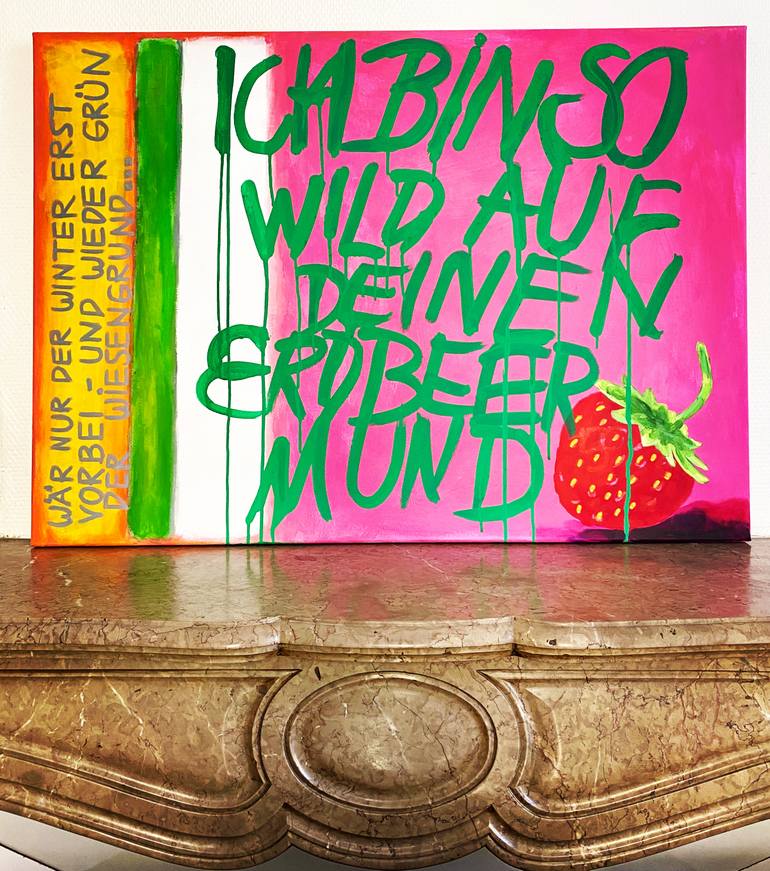 WÄR NUR DER WINTER ERST
VORBEI - UND WIEDER GRÜN
DER WIESENGRUND...
ICH BIN SO
WILD AUF
DEINEN
ERDBEER
MUND